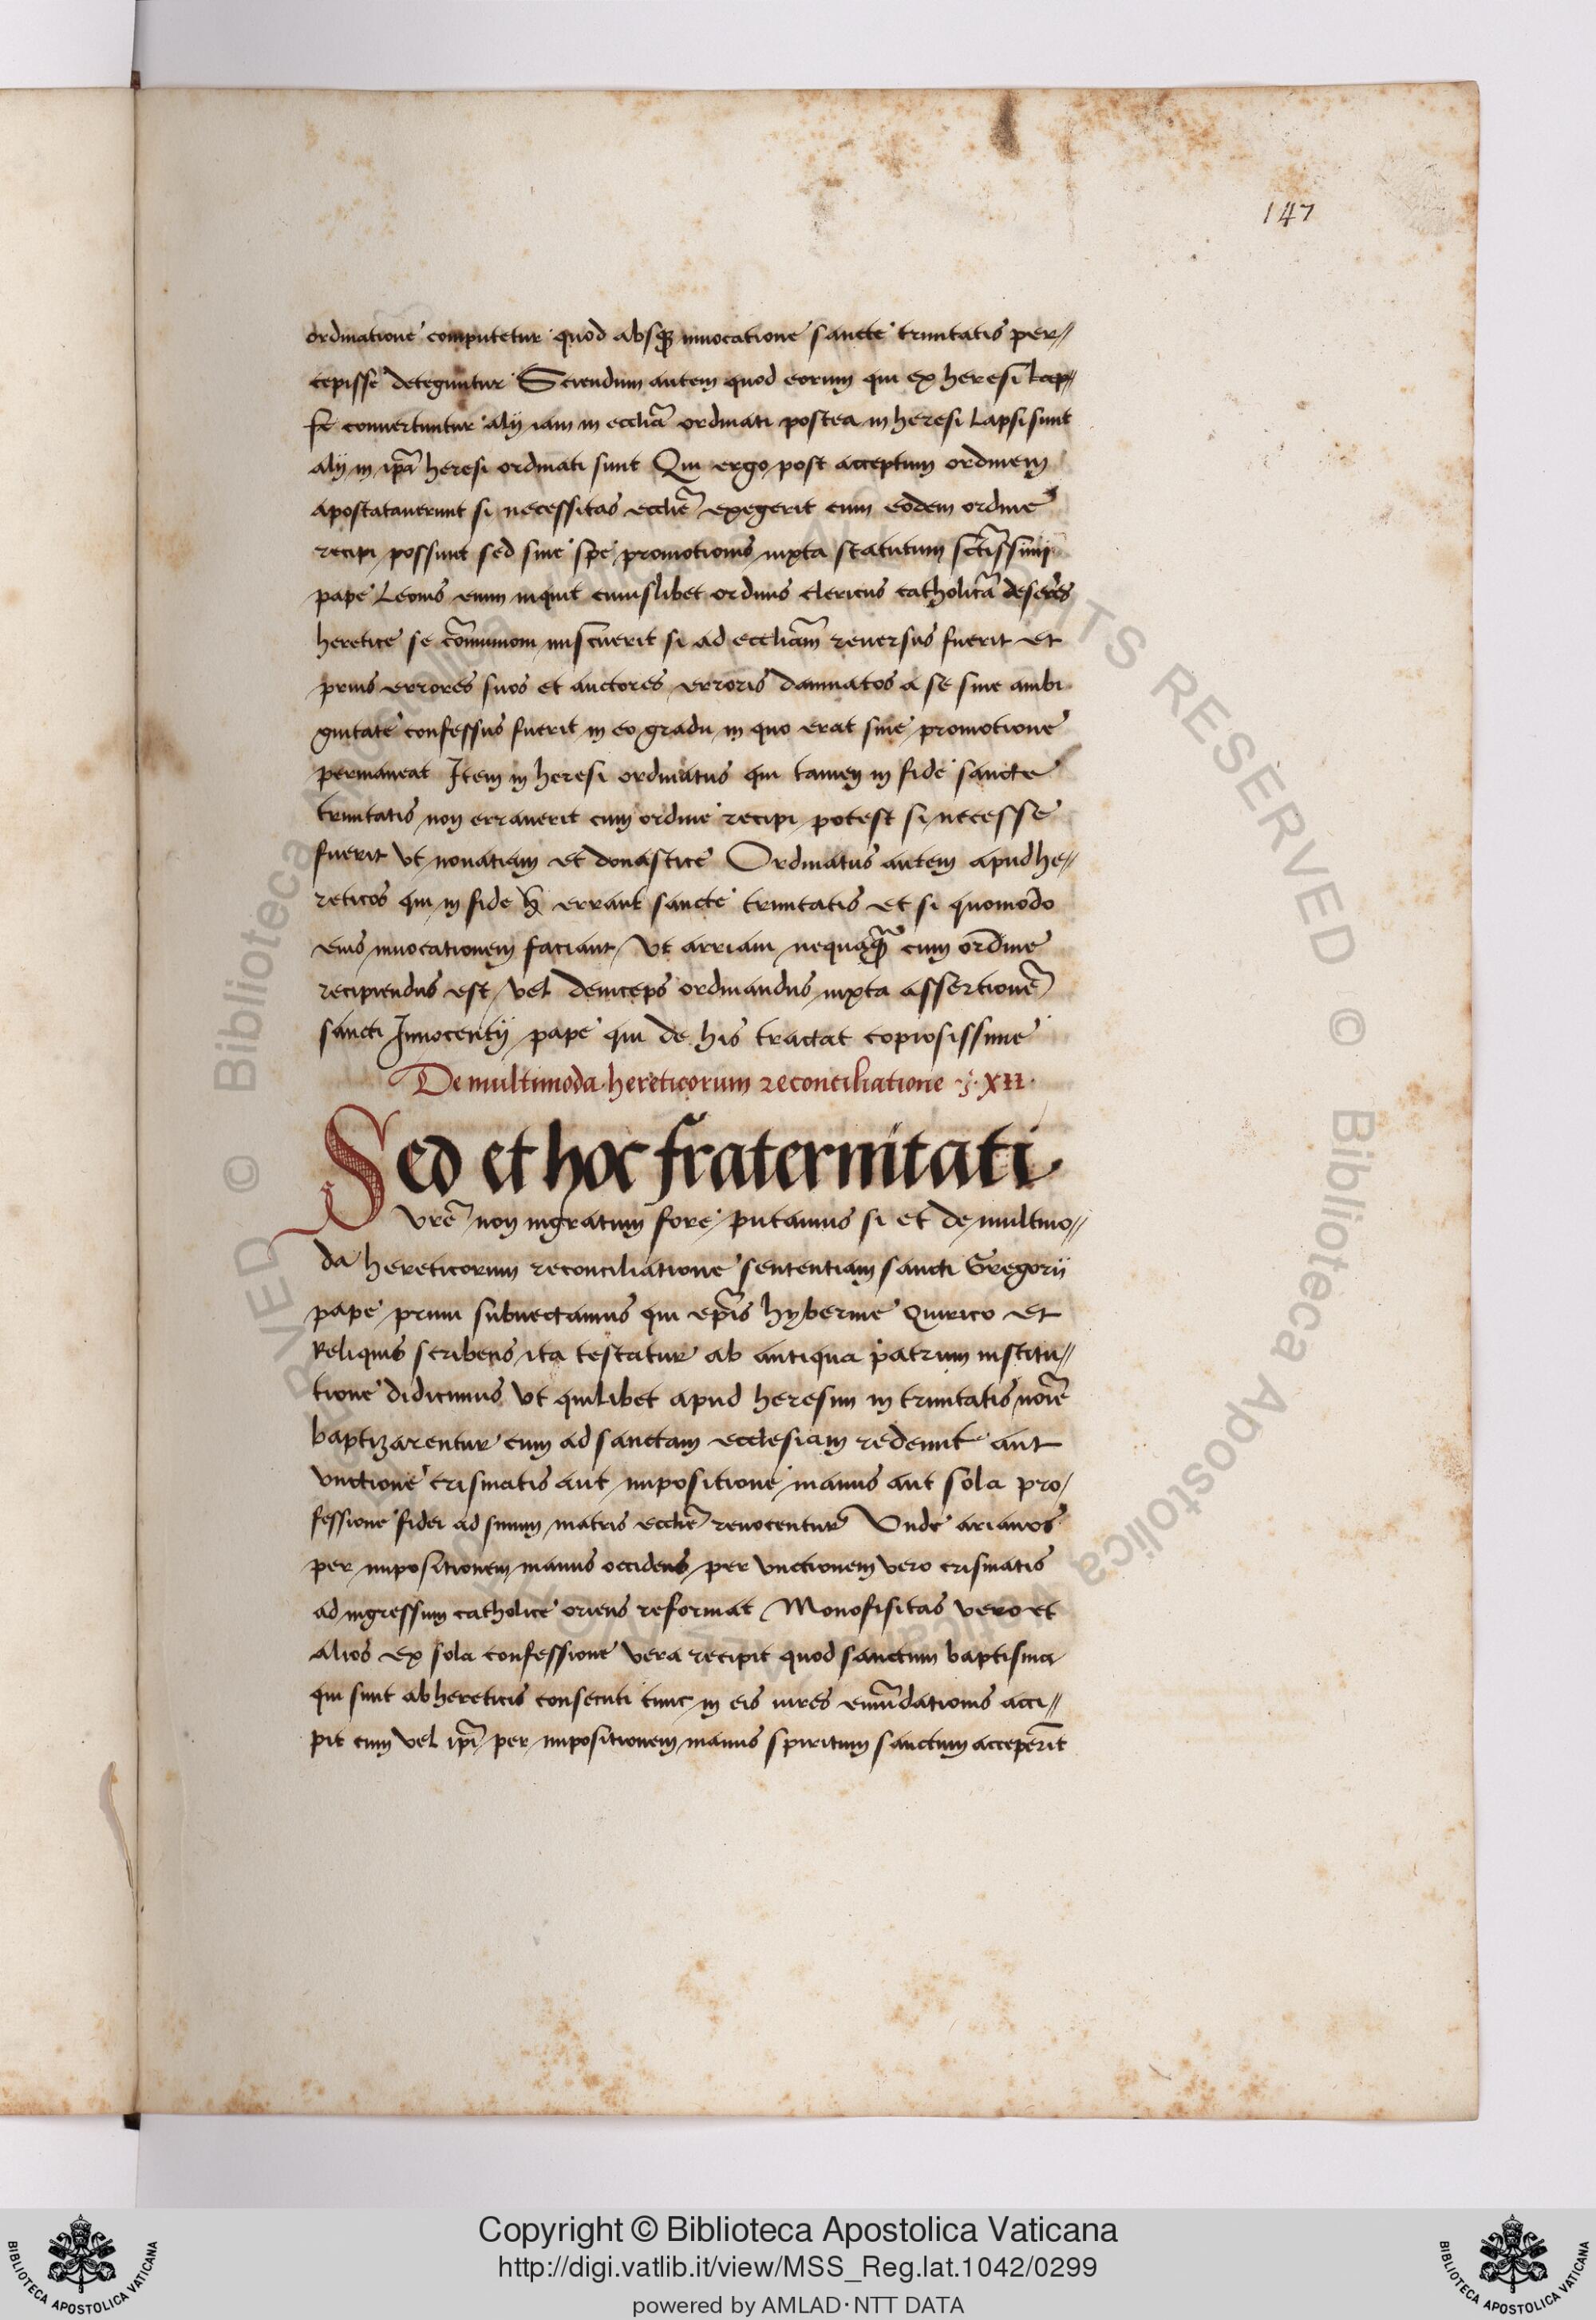 147
ordinatione computetur quod absq3 inuocatione sancte trinitatis per//
cepisse deteguntur Sciendum autem quod eorum qui ex heresi
conuertuntur alij iam in eccliã ordinati postea in heresi lapsi sunt
alij in ipã heresi ordinati sunt Qui ergo post acceptum ordinem
apostatauerunt si necessitas ecclie exegerit cum eodem ordine
recipi possunt sed sine spe promotionis iuxta statutum sctissimi
pape Leonis enim inquit cuiuslibet ordinis clericus catholicã deseres
heretice se cõmunioni miscuerit si ad eccliam reuersus fuerit et
prius errores suos et auctores erroris damnatos a se sine ambi
guitate confessus fuerit in eo gradu in quo erat sine promotione
permaneat Item in heresi ordinatus qui tamen in fide sancte
trinitatis non errauerit cum ordine recipi potest si necesse
fuerit vt nouatiani et donastice Ordinatus autem apud he//
reticos qui in fide errant sancte trinitatis et si quomodo
eius inuocationem faciant vt arriani nequaq̃ cum ordine
recipiendus est vel deinceps ordinandus iuxta assertionẽ
sancti Innocentij pape qui de his tractat copiosissime
De multimoda hereticorum reconciliatione · XII ·
Sed et hoc fraternitati
vrẽ non ingratum fore putamus si et de multimo//
da hereticorum reconciliatione sententiam sancti Gregorij
pape primi subnectamus qui epĩs hybernie Quirico et
Reliquis scribens ita testatur ab antiqua patrum institu//
tione didicimus vt quilibet apud heresim in trinitatis noĩe
baptizarentur cum ad sanctam ecclesiam redeunt aut
vnctione crismatis aut impositione manus aut sola pro/
fessione fidei ad sinum matris ecclie reuocentur Vnde arianos
per impositionem manus occidens per vnctionem vero crismatis
ad ingressum catholice oriens reformat Monofisitas vero et
alios ex sola confessione vera recipit quod sanctum baptisma
qui sunt ab hereticis consecuti tunc in eis uires emũdationis acci//
pit cum vel ipĩ per impositionem manus spiritum sanctum acceperĩt
© Biblioteca Apostolica Vaticana ALL RIGHTS RESERVED
Copyright © Biblioteca Apostolica Vaticana
http://digi.vatlib.it/view/MSS_Reg.lat.1042/0299
powered by AMLAD·NTT DATA
BIBLIOTECA APOSTOLICA VATICANA
BIBLIOTECA APOSTOLICA VATICANA